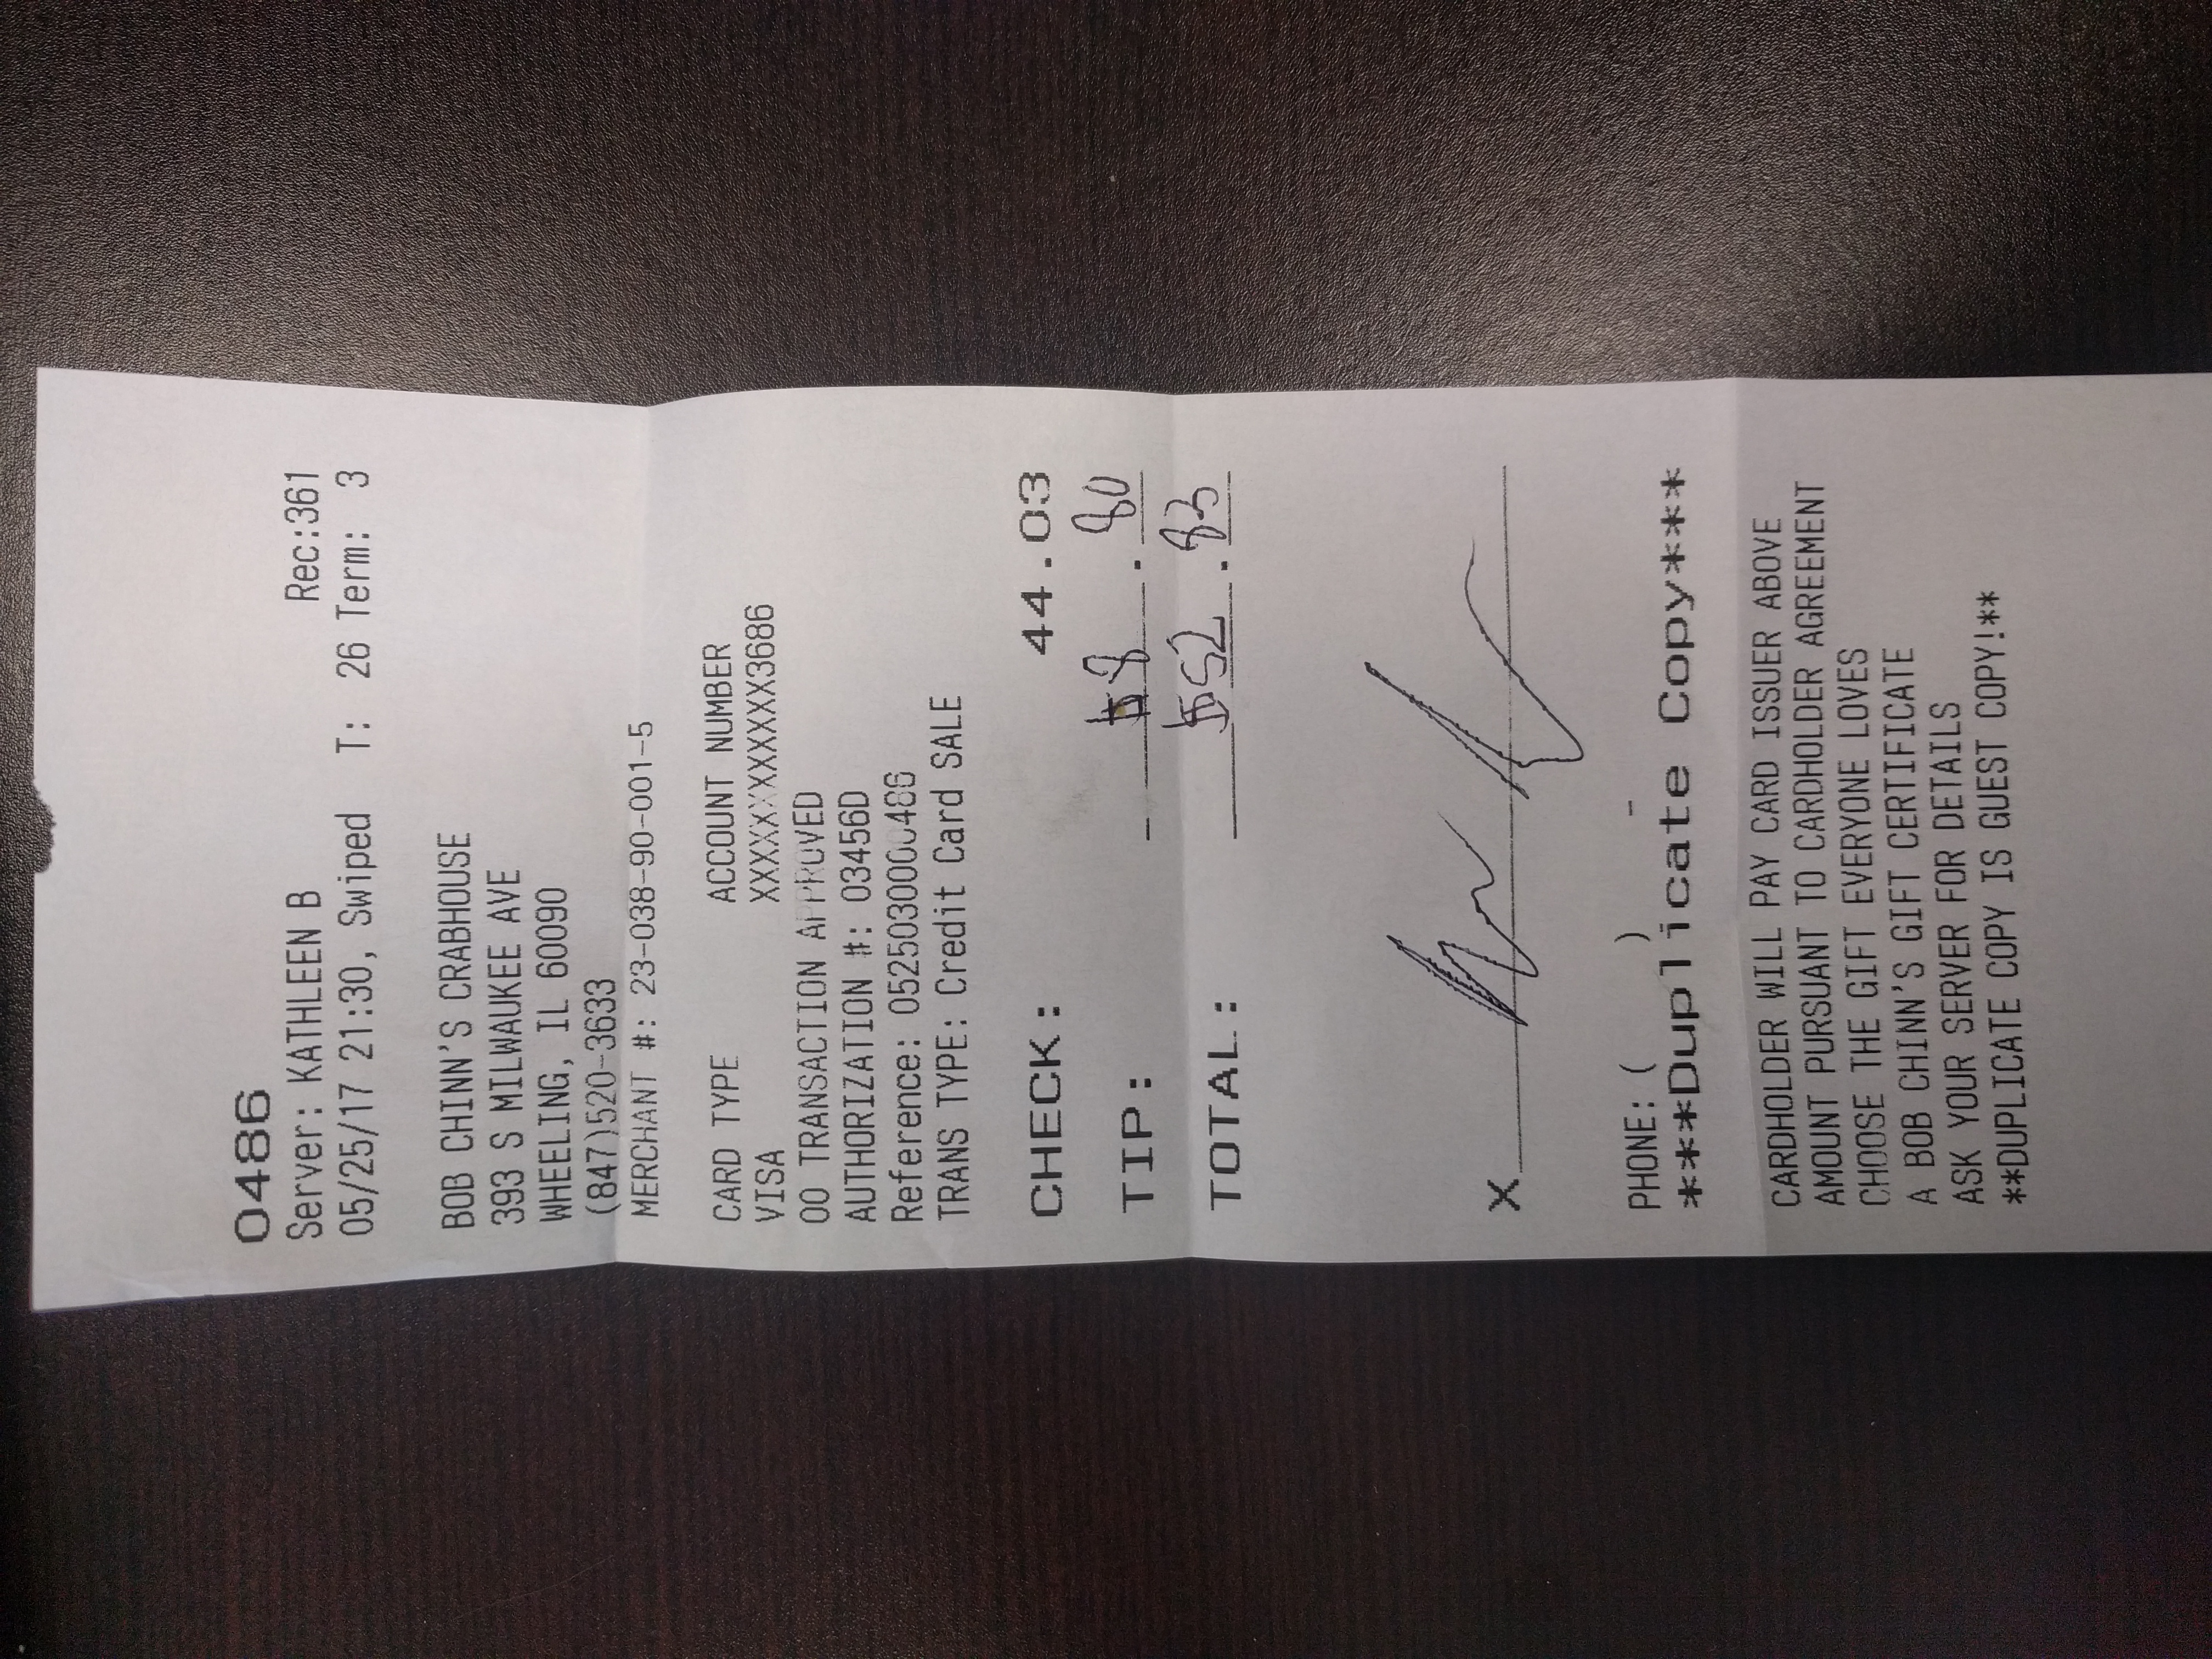 0486
Server: KATHLEEN B Rec:361
05/25/17 21:30, Swiped T: 26 Term: 3
BOB CHINN'S CRABHOUSE
393 S MILWAUKEE AVE
WHEELING, IL 60090
(847)520-3633
MERCHANT #: 23-038-90-001-5
CARD TYPE ACCOUNT NUMBER
VISA XXXXXXXXXXXX3686
00 TRANSACTION APPROVED
AUTHORIZATION #: 03456D
Reference: 0525030000486
TRANS TYPE: Credit Card SALE
CHECK: 44.03
TIP: $8.80
TOTAL: $52.83
X
PHONE: ( ) -
***Duplicate Copy***
CARDHOLDER WILL PAY CARD ISSUER ABOVE
AMOUNT PURSUANT TO CARDHOLDER AGREEMENT
CHOOSE THE GIFT EVERYONE LOVES
A BOB CHINN'S GIFT CERTIFICATE
ASK YOUR SERVER FOR DETAILS
**DUPLICATE COPY IS GUEST COPY!**